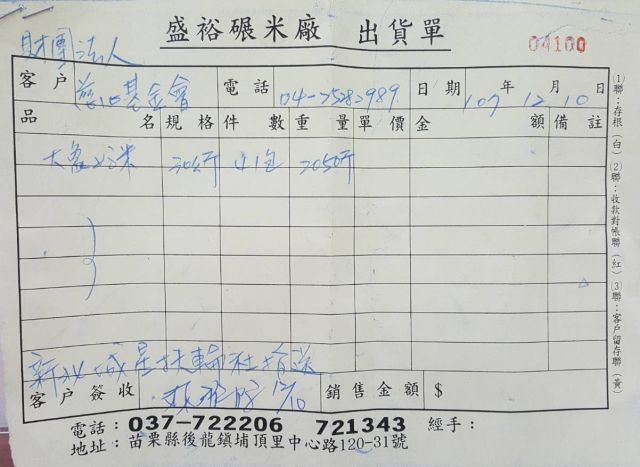 盛裕碾米廠 出貨單
04100
財團法人
客戶 慈心基金會 電話 04-25282989 日期 107年12月10日
品名 規格 件數 重量 單價 金額 備註
30公斤 2050斤
城星扶輪社捐送
客戶簽收 12/10 銷售金額 $
電話：037-722206 721343 經手：
地址：苗栗縣後龍鎮埔頂里中心路120-31號
(1)聯：存根(白) (2)聯：收款對帳聯(紅) (3)聯：客戶留存聯(黃)